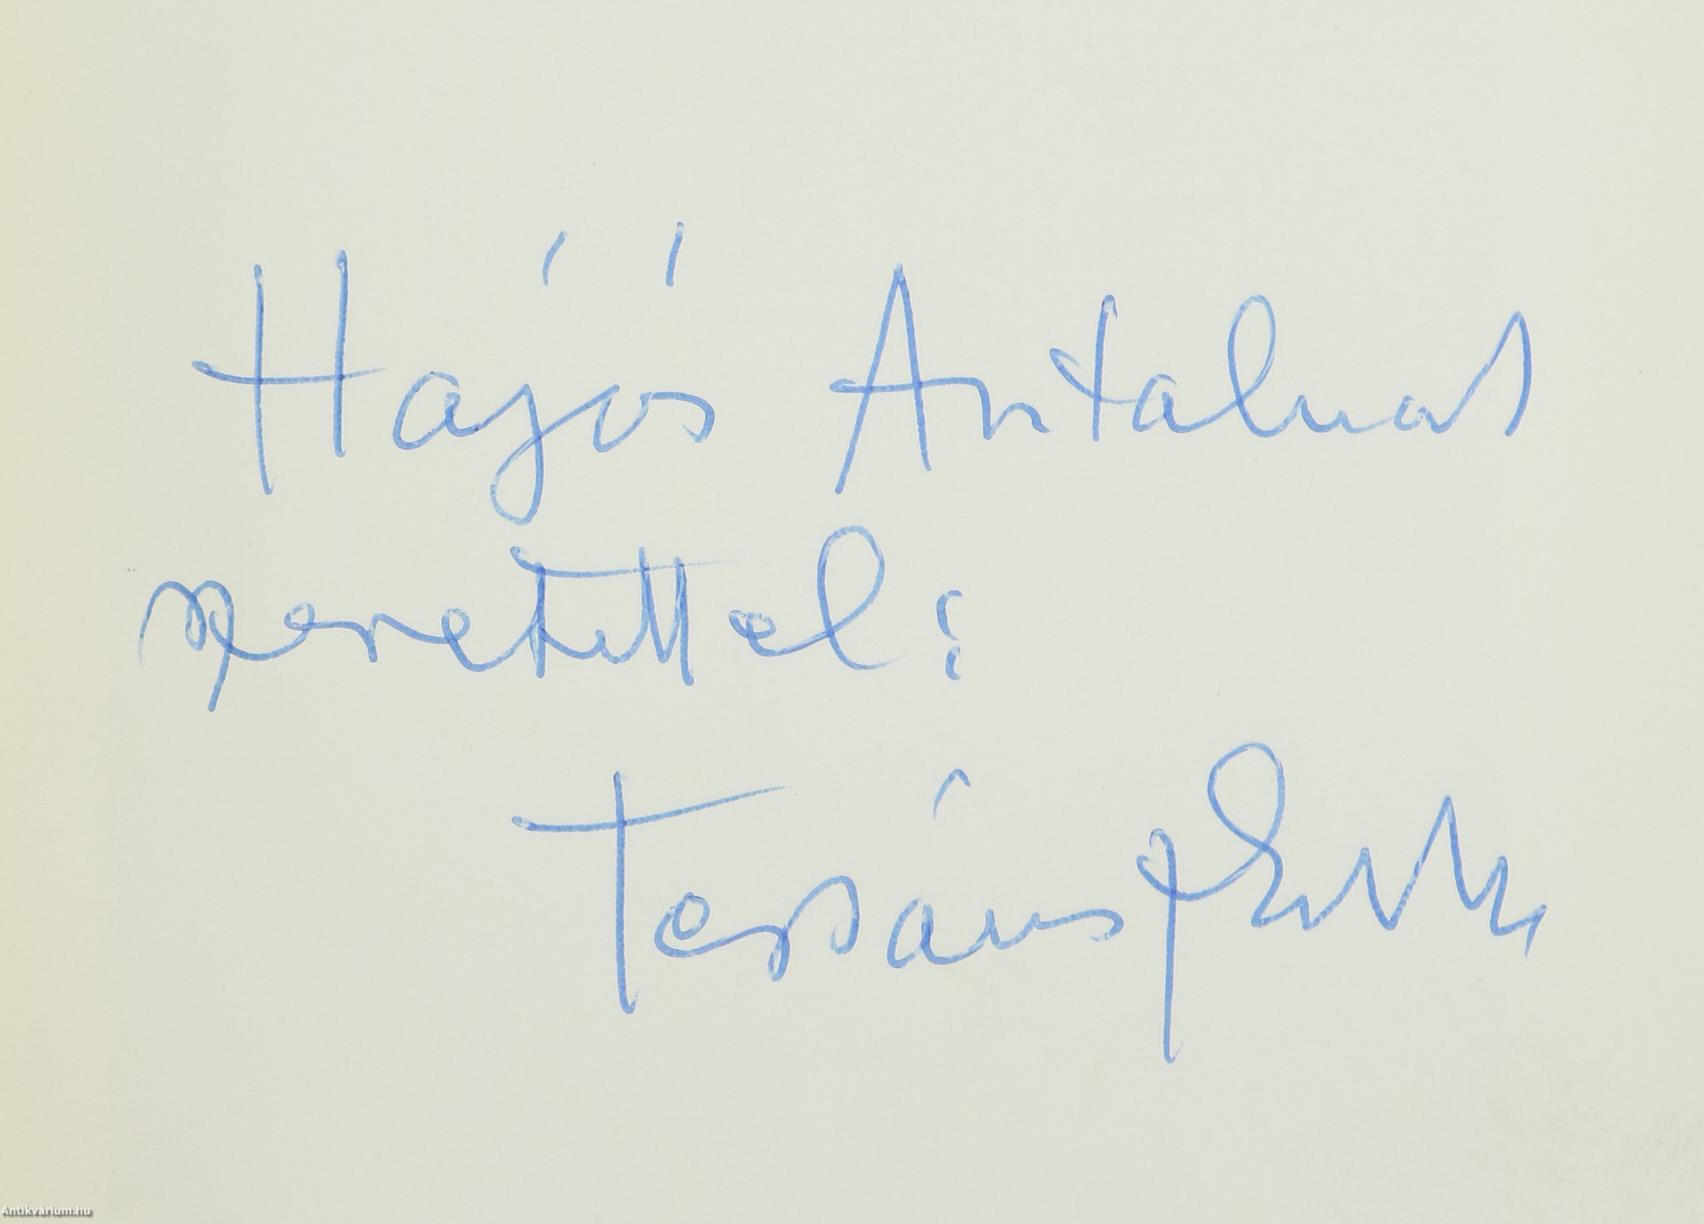 Hajós Antalnak
szeretettel:
Antikvárium.hu